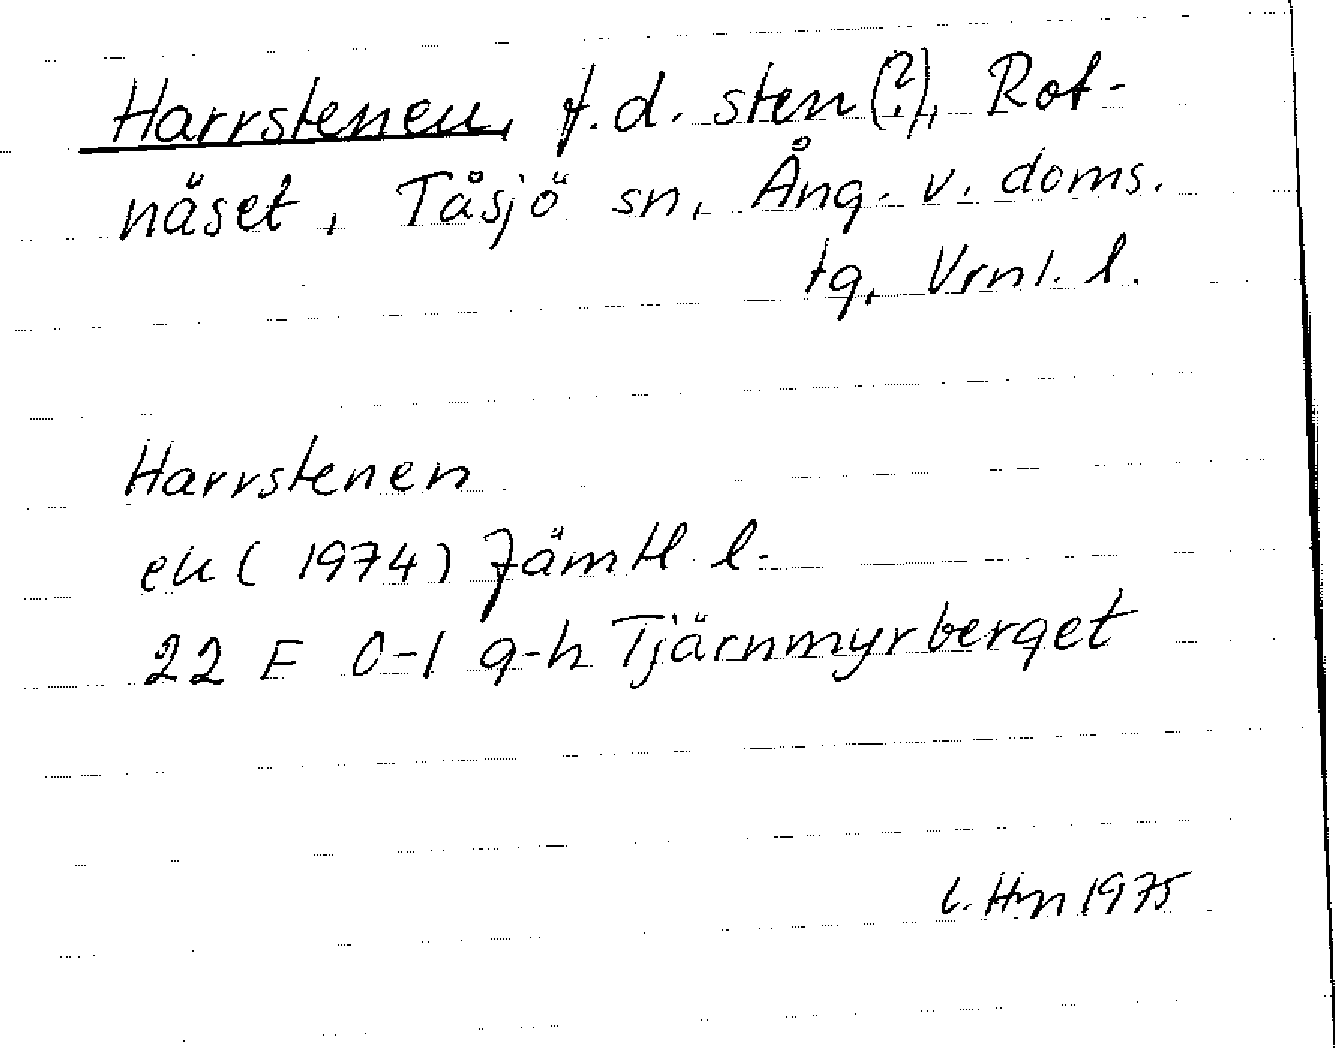 Harrstenen, f.d. sten(?), Rot-
näset, Tåsjö sn, Ång. v. doms.
tg, Vrnl. l.
Harrstenen
ek (1974) Jämtl. l.
22 F 0-1 g-h Tjärnmyrberget
L. Hm 1975